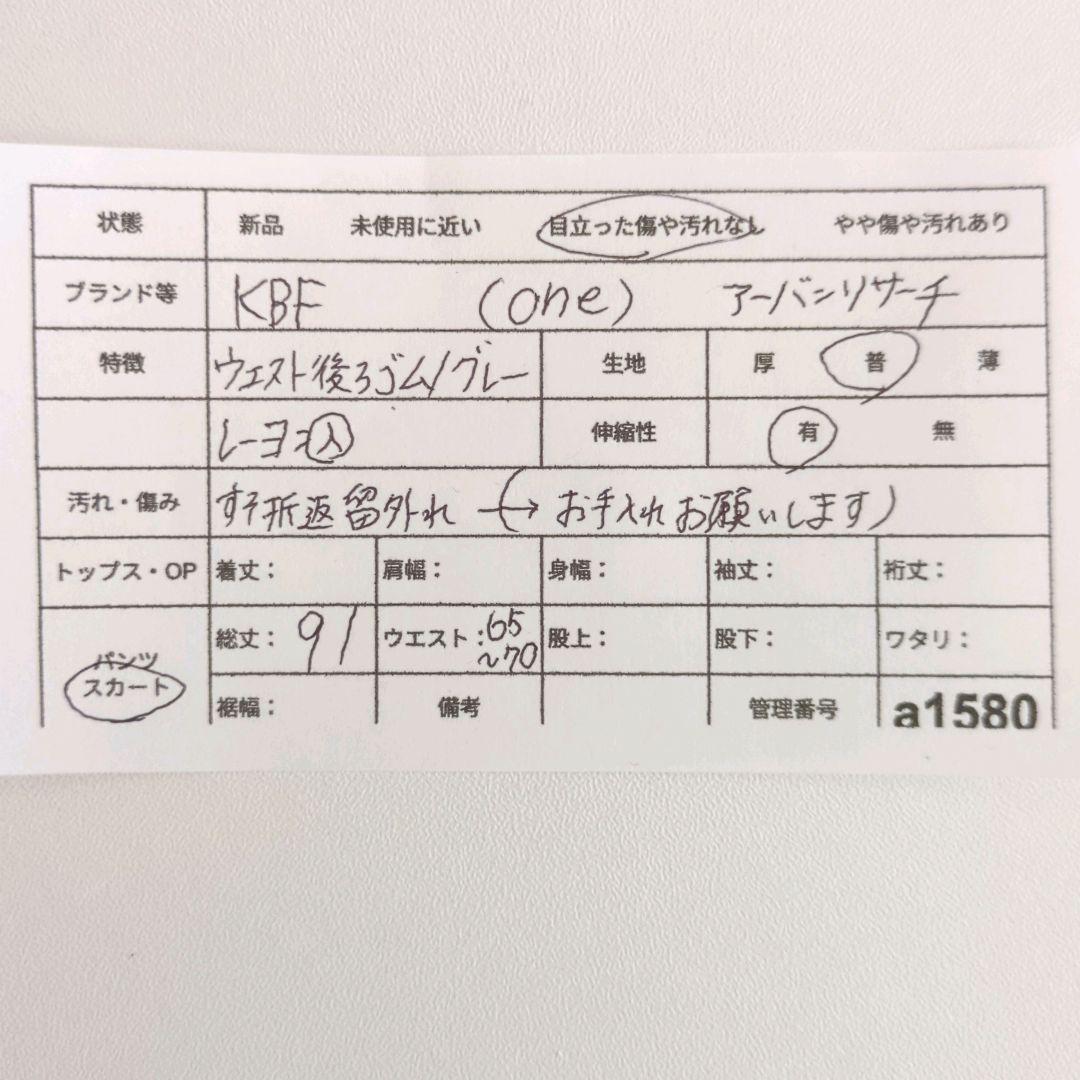 状態 新品 未使用に近い 目立った傷や汚れなし やや傷や汚れあり
ブランド等 KBF (one) アーバンリサーチ
特徴 ウエスト後ろゴム/グレー 生地 厚 普 薄
レーヨン入 伸縮性 有 無
汚れ・傷み すそ折返留外れ (→お手入れお願いします)
トップス・OP 着丈： 肩幅： 身幅： 袖丈： 裄丈：
パンツ スカート 総丈：91 ウエスト：65～70 股上： 股下： ワタリ：
裾幅： 備考 管理番号 a1580